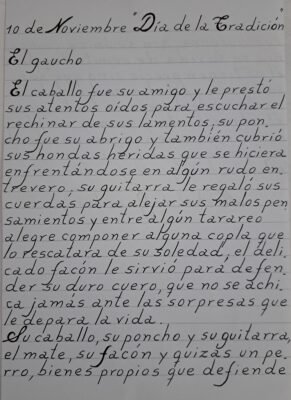 10 de Noviembre "Día de la Tradición"
El gaucho
El caballo fue su amigo y le prestó
sus atentos oídos para escuchar el
rechinar de sus lamentos, su pon_
cho fue su abrigo y también cubrió
sus hondas heridas que se hiciera
enfrentándose en algún rudo en_
trevero, su guitarra le regaló sus
cuerdas para alejar sus malos pen
samientos y entre algún tarareo
alegre componer alguna copla que
lo rescatara de su soledad, el deli_
cado facón le sirvió para defen_
der su duro cuero, que no se achi_
ca jamás ante las sorpresas que
le depara la vida.
Su caballo, su poncho y su guitarra,
el mate, su facón y quizás un pe_
rro, bienes propios que defiende